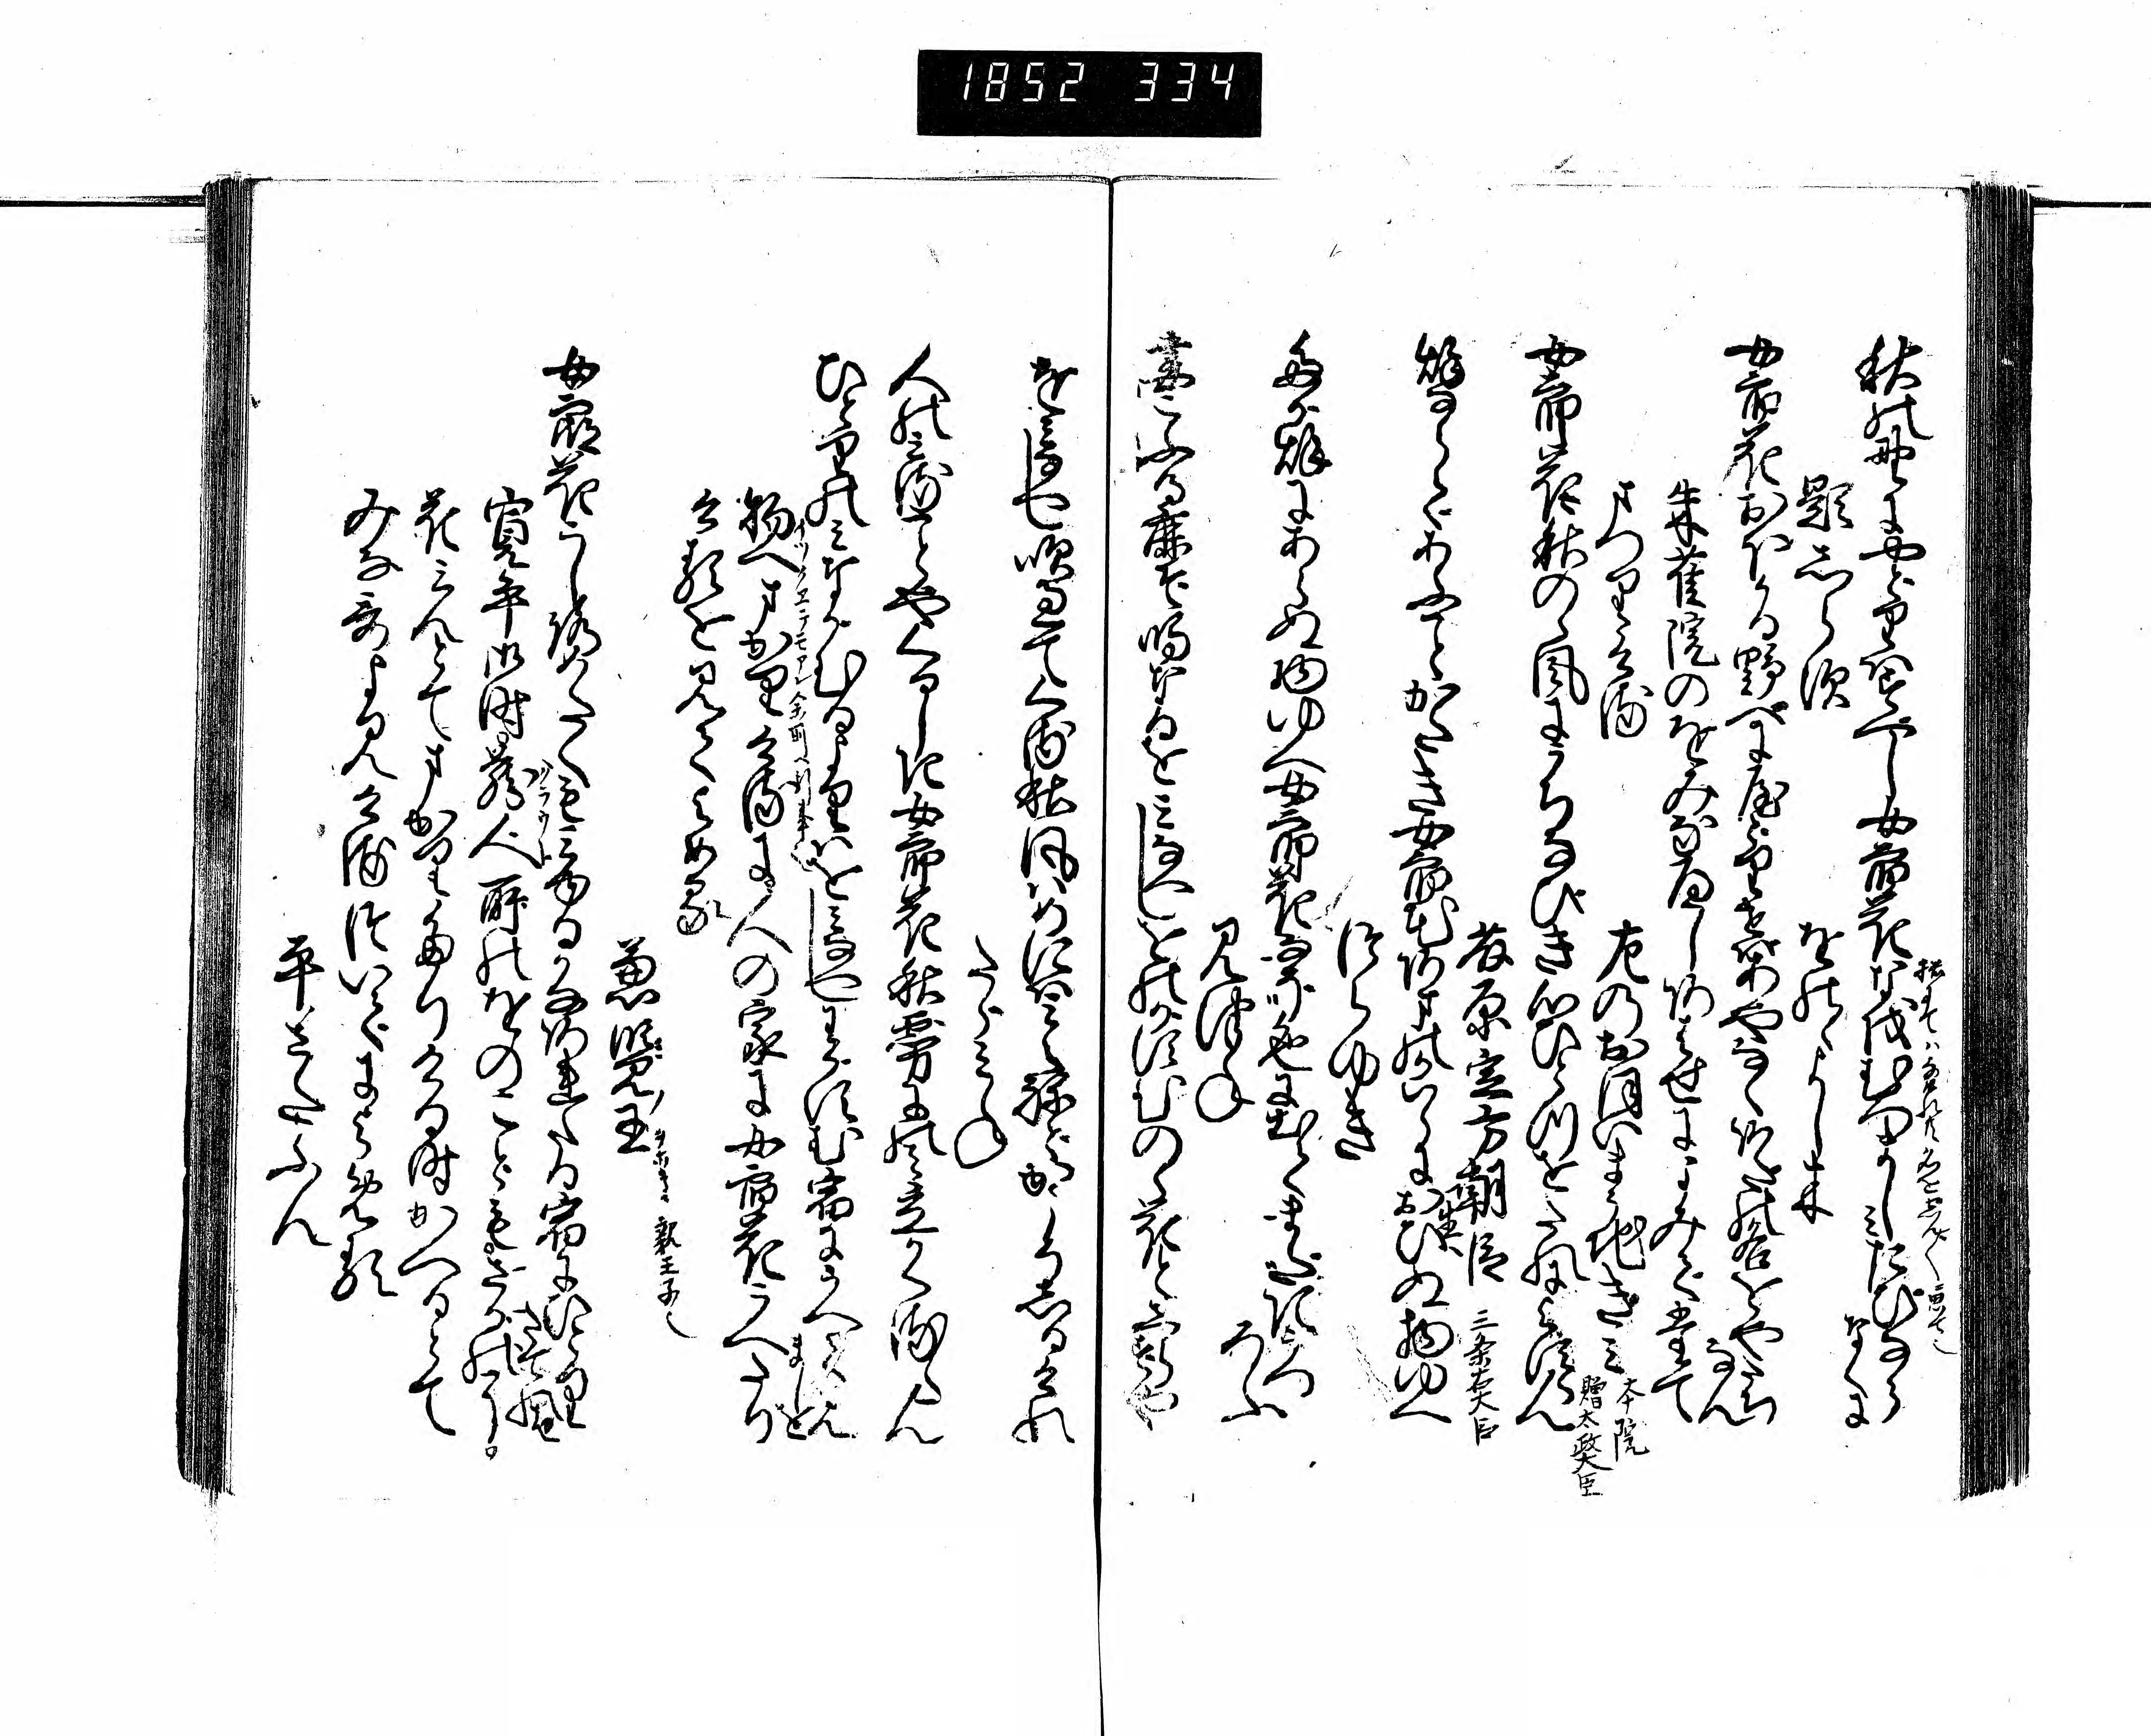 1852 334
秋の野にやどりはすべし女郎花な越むつましみたびなら
なくに
題しら須　をのゝよし木
女郎花おほかる野べにやどりせばあやなくあだの名をやたち
なん
朱雀院のをみなへしあはせによみて奉て
まつりける　左のおほいまうちぎみ　本院贈太政大臣
女郎花秋のゝ風にうちなびき心ひとつをたれによすらん
藤原定方朝臣　三条右大臣
秌ならであふことかたき女郎花あまのかはらにおひぬ物ゆへ
つらゆき
たが秌にあらぬ物ゆへ女郎花なぞ色にいでゝまだきうつ
ろふ
見つね
妻こふる鹿ぞ鳴なるをみなへしをのがすむのゝ花としらずや
をみなへし吹過てくる秋風はめにはみえねどかこそしるけれ
たゞみね
人のみることやくるしき女郎花秋霧にのみ立かくるらん
ひとりのみながむるよりはをみなへしわがすむ宿にうへてみん
ましを
物へまかりけるに人の家に女郎花うへたり
けるを見てよめる
兼覧王
女郎花うしろめたくもみゆるかなあれたる宿にひとり
たてれば
寛平御時蔵人所のをのこどもさがのに
花みんとてまかりたりける時かへるとて
みな哥よみけるついでによめる
平さだふん